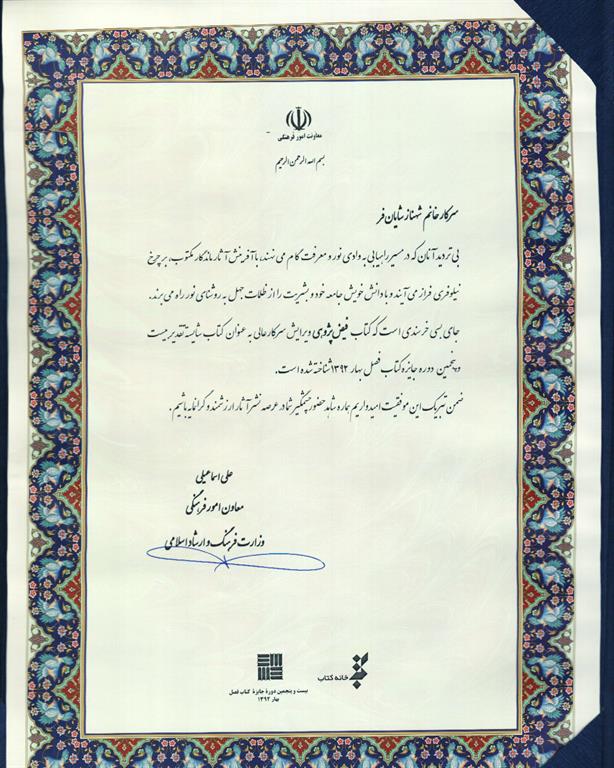 معاونت امور فرهنگی
بسم الله الرحمن الرحیم
سرکار خانم شهناز شایان فر
بی تردید آنان که در مسیر راهیابی به وادی نور و معرفت گام می نهند، با آفرینش آثار ماندگار مکتوب، بر چرخ
نیلوفری فراز می آیند و با دانش خویش جامعه خود و بشریت را از ظلمات جهل به روشنای نور راه می برند.
جای بسی خرسندی است که کتاب فیض پژوهی ویرایش سرکار عالی به عنوان کتاب شایسته تقدیر بیست
و پنجمین دوره جایزه کتاب فصل بهار ۱۳۹۲ شناخته شده است.
ضمن تبریک این موفقیت امیدواریم هماره شاهد حضور چشمگیر شما در عرصه نشر آثار ارزشمند و گرانمایه باشیم.
علی اسماعیلی
معاون امور فرهنگی
وزارت فرهنگ و ارشاد اسلامی
خانه کتاب
بیست و پنجمین دورهٔ جایزهٔ کتاب فصل
بهار ۱۳۹۲